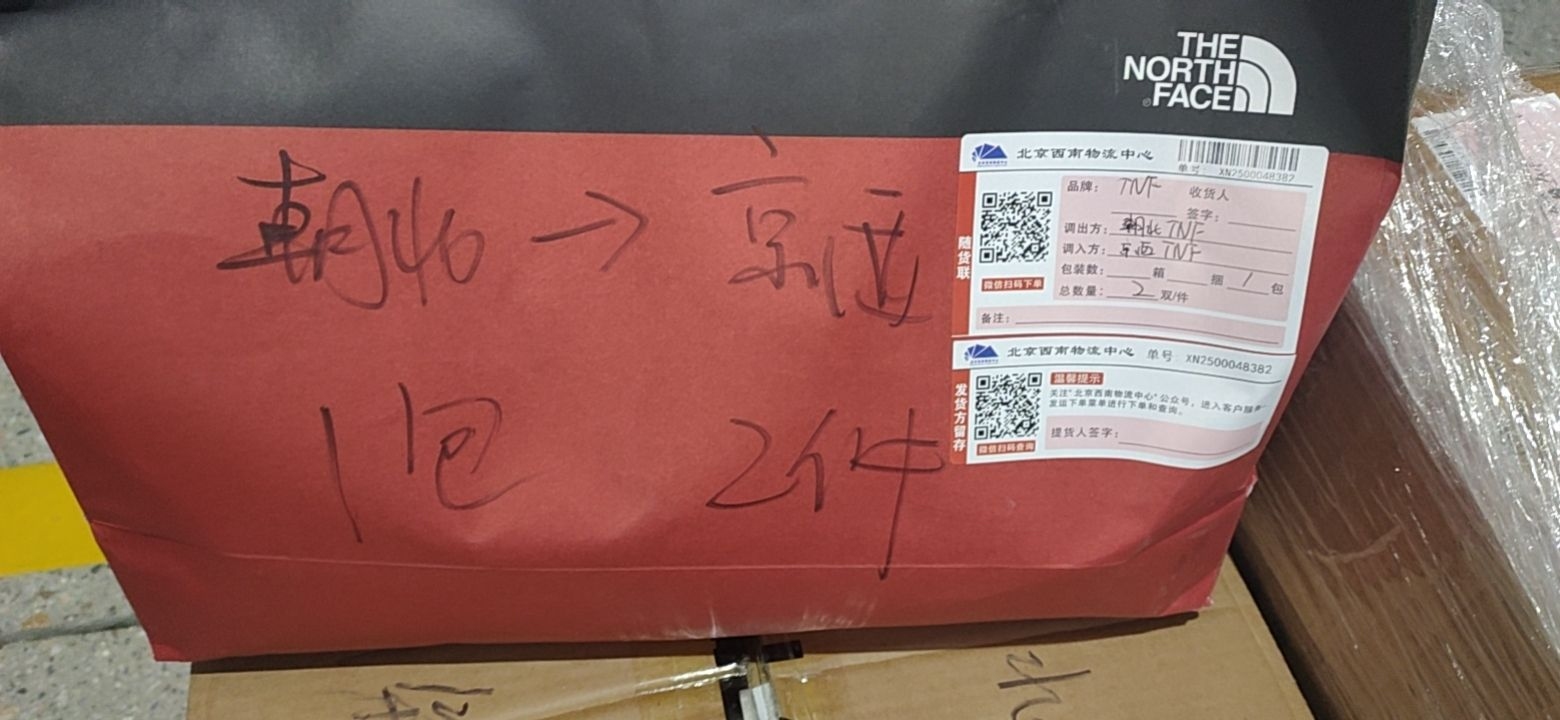 THE
NORTH
FACE
朝北 → 京西
1包 2件
北京西南物流中心
单号: XN2500048382
随货联
微信扫码下单
品牌: TNF 收货人
签字:
调出方: 朝北TNF
调入方: 京西TNF
包装数: 箱 捆 1 包
总数量: 2 双/件
备注:
北京西南物流中心 单号: XN2500048382
发货方留存
微信扫码查询
温馨提示
关注"北京西南物流中心"公众号,进入客户服务
发运下单菜单进行下单和查询。
提货人签字: